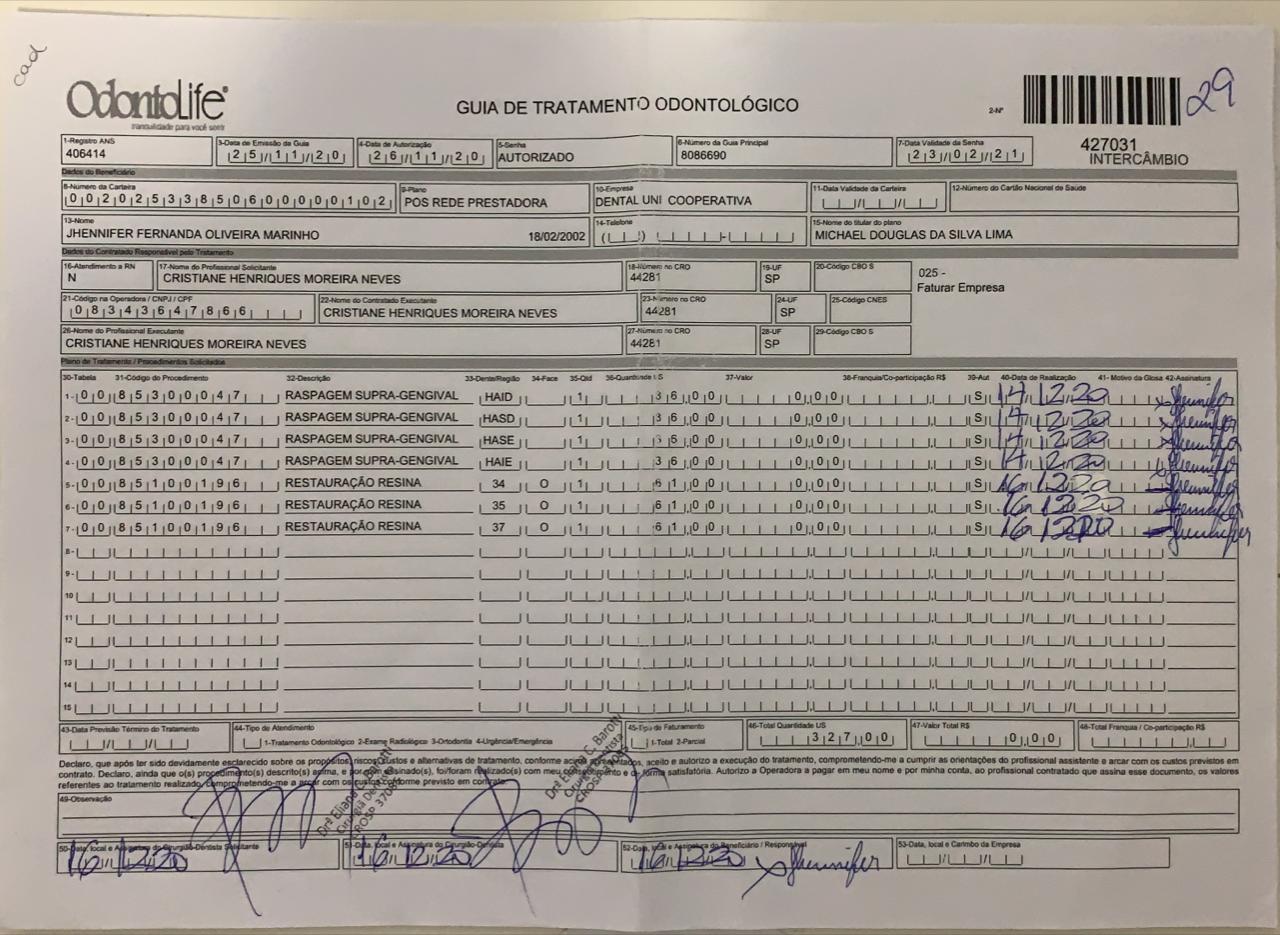 cad
OdontoLife®
tranquilidade para você sorrir
GUIA DE TRATAMENTO ODONTOLÓGICO
2-Nº
29
427031
INTERCÂMBIO
1-Registro ANS
406414
3-Data de Emissão da Guia
25/11/20
4-Data de Autorização
26/11/20
5-Senha
AUTORIZADO
6-Número da Guia Principal
8086690
7-Data Validade da Senha
23/02/21
Dados do Beneficiário
8-Número da Carteira
00202533850600000102
9-Plano
POS REDE PRESTADORA
10-Empresa
DENTAL UNI COOPERATIVA
11-Data Validade da Carteira
12-Número do Cartão Nacional de Saúde
13-Nome
JHENNIFER FERNANDA OLIVEIRA MARINHO 18/02/2002
14-Telefone
15-Nome do titular do plano
MICHAEL DOUGLAS DA SILVA LIMA
Dados do Contratado Responsável pelo Tratamento
16-Atendimento a RN
N
17-Nome do Profissional Solicitante
CRISTIANE HENRIQUES MOREIRA NEVES
18-Número no CRO
44281
19-UF
SP
20-Código CBO S
025 -
Faturar Empresa
21-Código na Operadora / CNPJ / CPF
08343647866
22-Nome do Contratado Executante
CRISTIANE HENRIQUES MOREIRA NEVES
23-Número no CRO
44281
24-UF
SP
25-Código CNES
26-Nome do Profissional Executante
CRISTIANE HENRIQUES MOREIRA NEVES
27-Número no CRO
44281
28-UF
SP
29-Código CBO S
Plano de Tratamento / Procedimentos Solicitados
30-Tabela 31-Código do Procedimento 32-Descrição 33-Dente/Região 34-Face 35-Qtd 36-Quantidade US 37-Valor 38-Franquia/Co-participação R$ 39-Aut 40-Data de Realização 41- Motivo da Glosa 42-Assinatura
1- 00 85300047 RASPAGEM SUPRA-GENGIVAL HAID 1 36,00 0,00 S 14 12 20 x Jhennifer
2- 00 85300047 RASPAGEM SUPRA-GENGIVAL HASD 1 36,00 0,00 S 14 12 20 x Jhennifer
3- 00 85300047 RASPAGEM SUPRA-GENGIVAL HASE 1 36,00 0,00 S 14 12 20 x Jhennifer
4- 00 85300047 RASPAGEM SUPRA-GENGIVAL HAIE 1 36,00 0,00 S 14 12 20 x Jhennifer
5- 00 85100196 RESTAURAÇÃO RESINA 34 O 1 61,00 0,00 S 16 12 20 Jhennifer
6- 00 85100196 RESTAURAÇÃO RESINA 35 O 1 61,00 0,00 S 16 12 20 Jhennifer
7- 00 85100196 RESTAURAÇÃO RESINA 37 O 1 61,00 0,00 S 16 12 20 Jhennifer
8-
9-
10
11
12
13
14
15
43-Data Previsão Término do Tratamento
44-Tipo de Atendimento
1-Tratamento Odontológico 2-Exame Radiológico 3-Ortodontia 4-Urgência/Emergência
45-Tipo de Faturamento
1-Total 2-Parcial
46-Total Quantidade US
327,00
47-Valor Total R$
0,00
48-Total Franquia / Co-participação R$
Declaro, que após ter sido devidamente esclarecido sobre os propósitos, riscos, custos e alternativas de tratamento, conforme acima apresentados, aceito e autorizo a execução do tratamento, comprometendo-me a cumprir as orientações do profissional assistente e arcar com os custos previstos em
contrato. Declaro, ainda que o(s) procedimento(s) descrito(s) acima, e por mim assinado(s), foi/foram realizado(s) com meu consentimento e de forma satisfatória. Autorizo a Operadora a pagar em meu nome e por minha conta, ao profissional contratado que assina esse documento, os valores
referentes ao tratamento realizado, comprometendo-me a arcar com os custos conforme previsto em contrato.
49-Observação
Drª Eliana C. Barotti
Cirurgiã Dentista
CROSP 37086
Drª Eliana C. Barotti
Cirurgiã Dentista
50-Data, local e Assinatura do Cirurgião-Dentista Solicitante
16 12 20
51-Data, local e Assinatura do Cirurgião-Dentista
16 12 20
52-Data, local e Assinatura do Beneficiário / Responsável
16 12 20 x Jhennifer
53-Data, local e Carimbo da Empresa